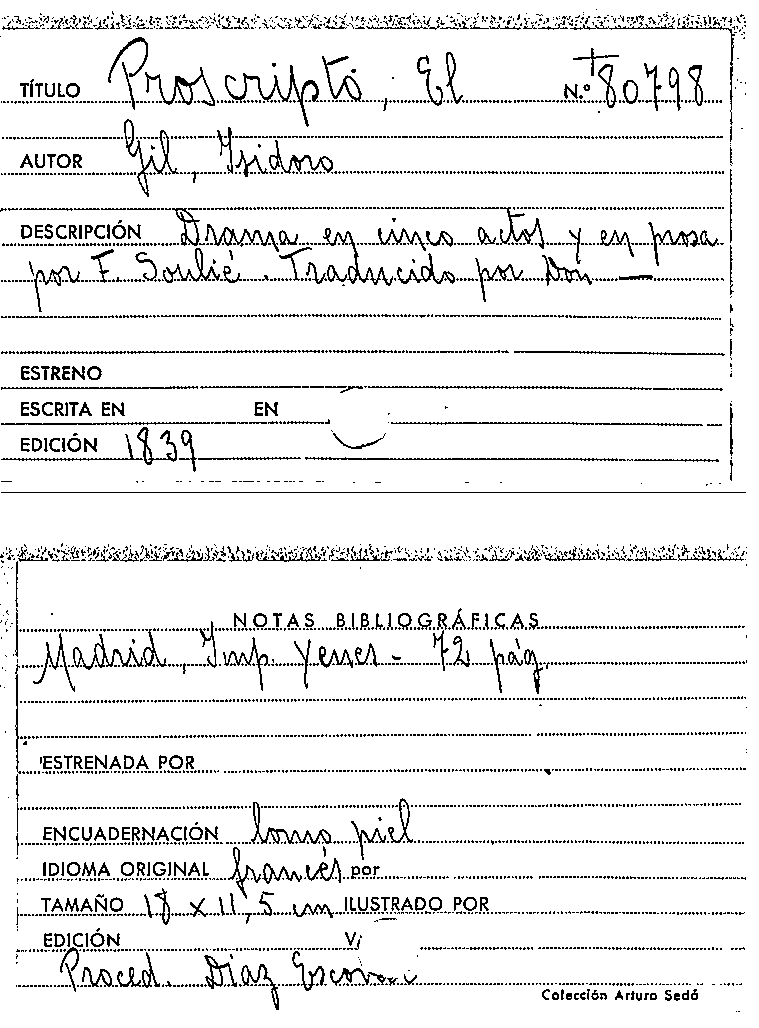 TÍTULO Proscripto, El N.º 80798
AUTOR Gil, Isidoro
DESCRIPCIÓN Drama en cinco actos y en prosa
por F. Soulié. Traducido por Don —
ESTRENO
ESCRITA EN EN
EDICIÓN 1839
NOTAS BIBLIOGRÁFICAS
Madrid, Imp. Yenes - 72 pág.
ESTRENADA POR
ENCUADERNACIÓN lomo piel
IDIOMA ORIGINAL francés por
TAMAÑO 18 x 11,5 cm ILUSTRADO POR
EDICIÓN
Proced. Díaz
Colección Arturo Sedó